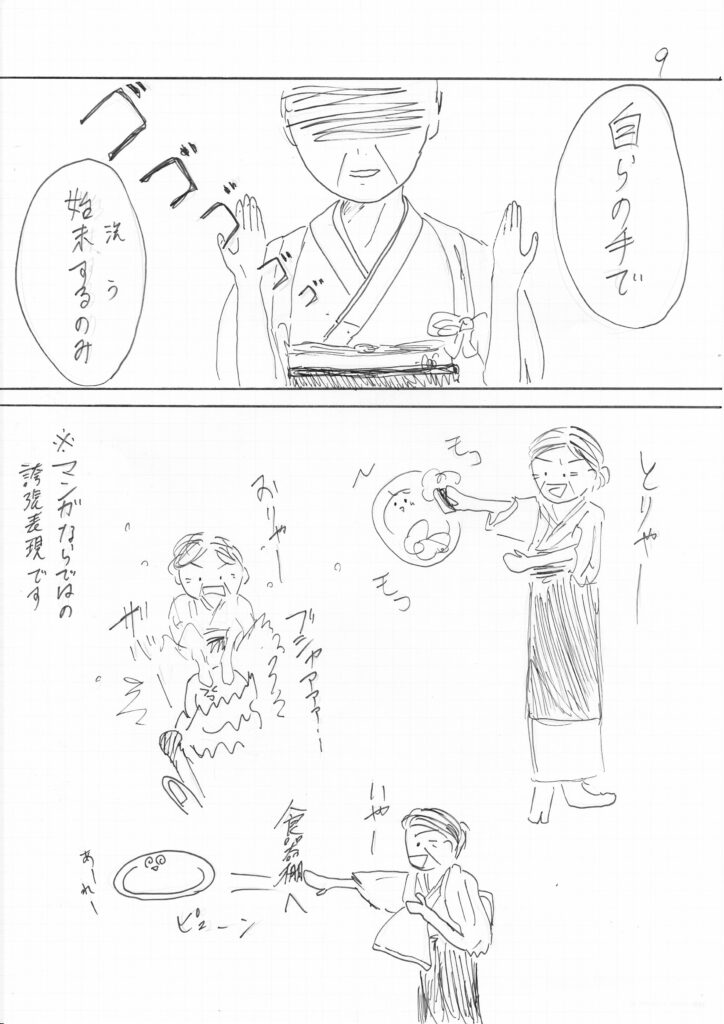 9
自らの手で
洗う
始末するのみ
ゴゴゴゴゴ
とりゃー
モコ
モコ
おりゃー
ブシャァァァァー
ザ
※マンガならではの
誇張表現です
いやー
食器棚へ
ピューン
あーれー